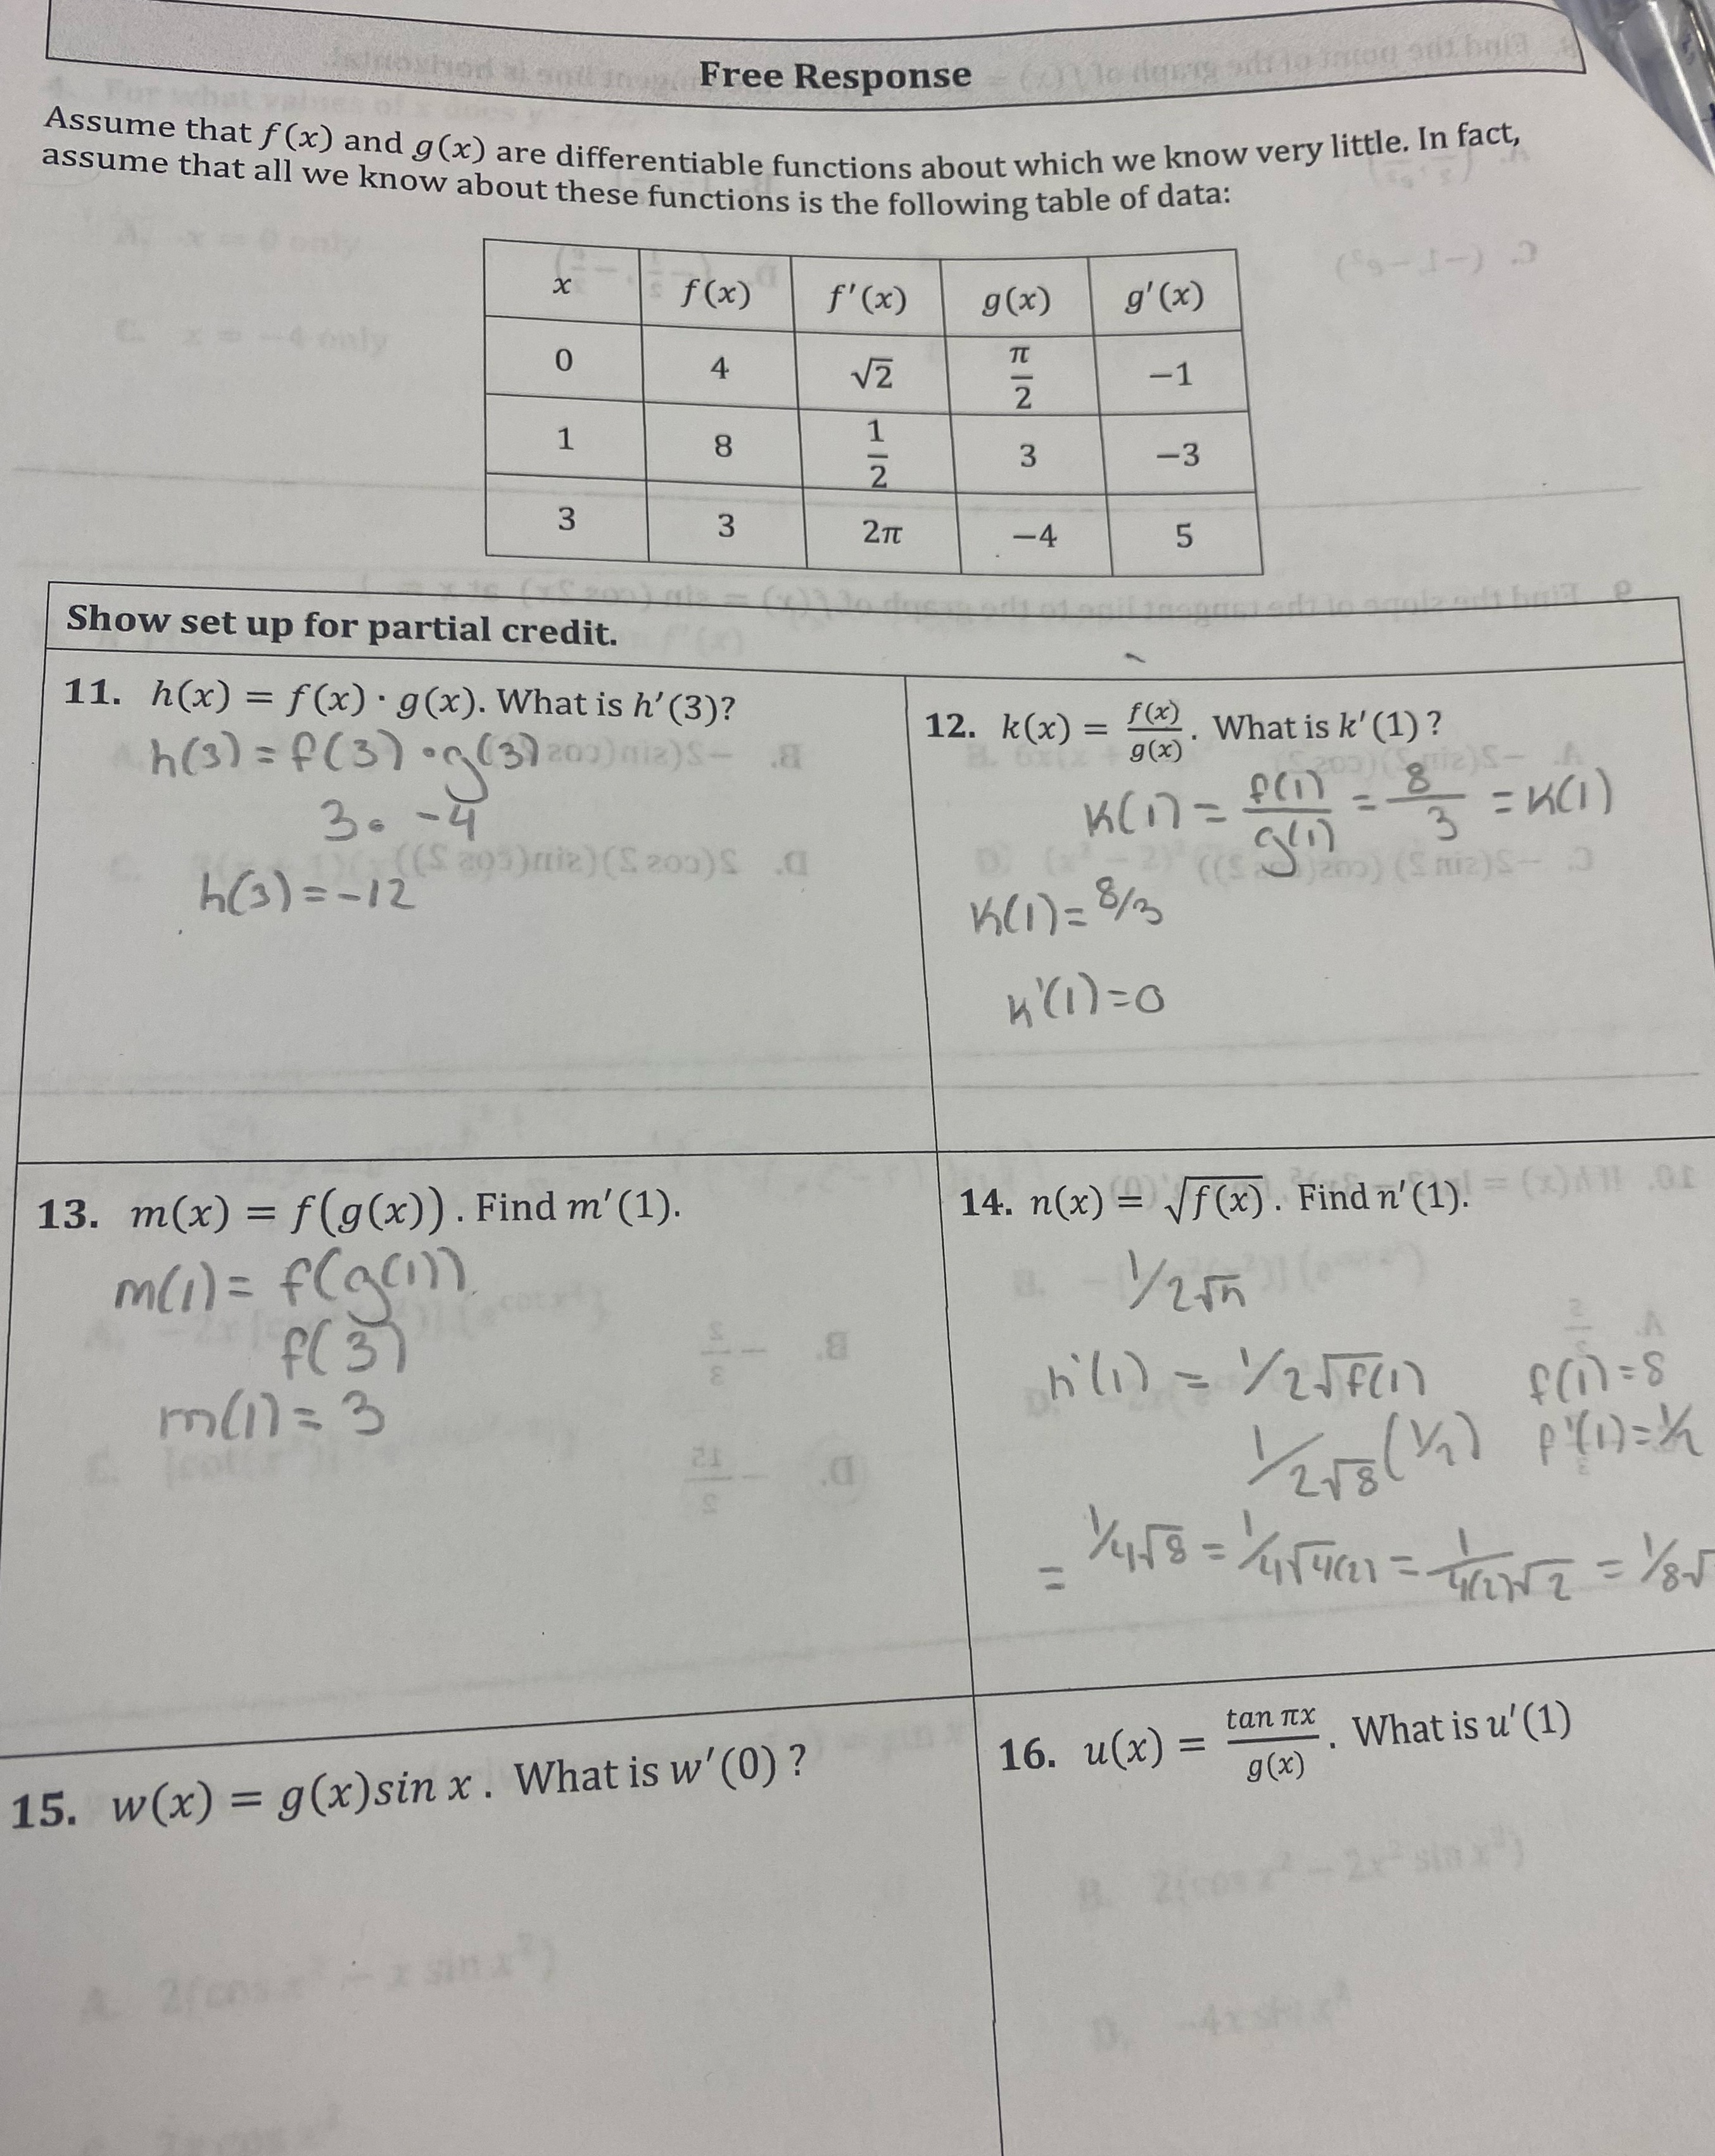 Free Response
Assume that f(x) and g(x) are differentiable functions about which we know very little. In fact,
assume that all we know about these functions is the following table of data:
x f(x) f'(x) g(x) g'(x)
0 4 √2 π/2 −1
1 8 1/2 3 −3
3 3 2π −4 5
Show set up for partial credit.
11. h(x) = f(x) · g(x). What is h′(3)?
h(3) = f(3) · g(3)
3 · -4
h(3) = -12
12. k(x) = f(x)/g(x). What is k′(1)?
K(1) = f(1)/g(1) = 8/3 = K(1)
K(1) = 8/3
K'(1) = 0
13. m(x) = f(g(x)). Find m′(1).
m(1) = f(g(1))
f(3)
m(1) = 3
14. n(x) = √f(x). Find n′(1).
1/2√n
n'(1) = 1/2√f(1) f(1) = 8
1/2√8 (1/2) f'(1) = 1/2
= 1/4√8 = 1/4√4(2) = 1/4(2)√2 = 1/8√
15. w(x) = g(x)sin x. What is w′(0) ?
16. u(x) = tan πx/g(x). What is u′(1)